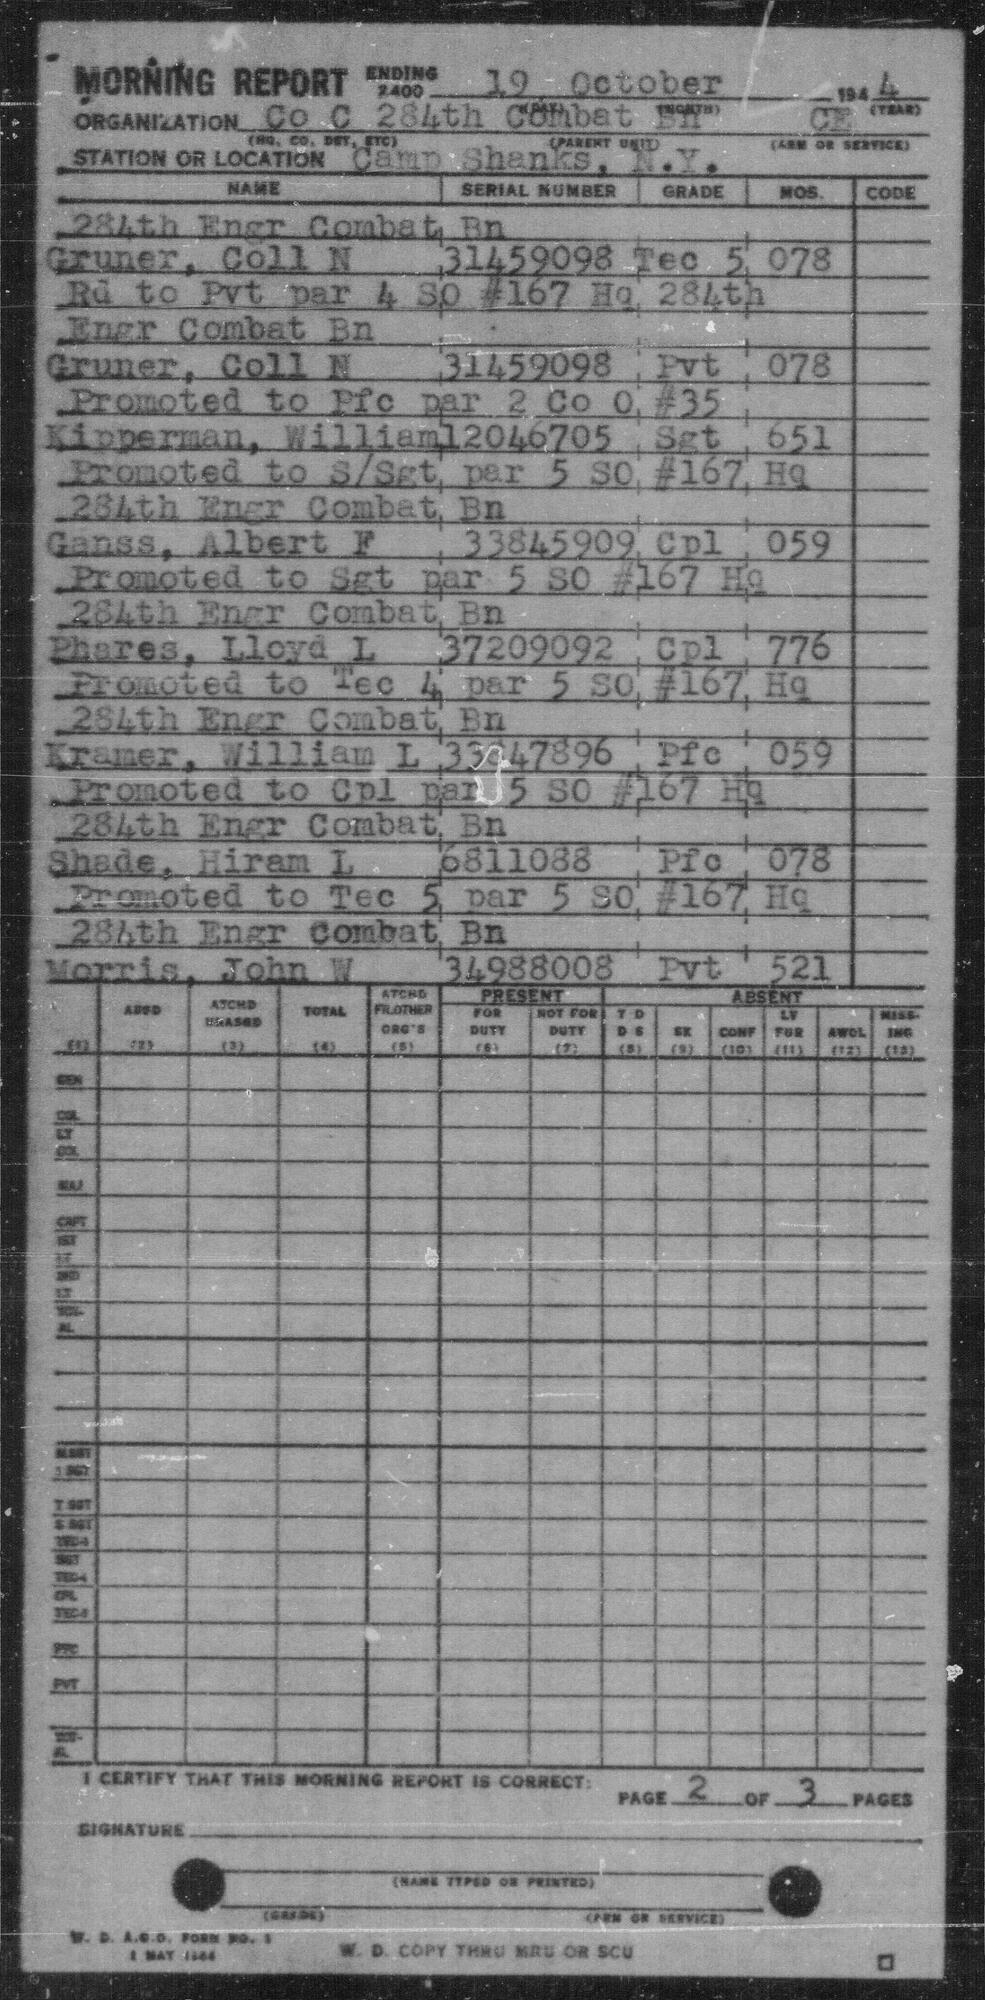 MORNING REPORT ENDING 2400 19 October 1944
(DAY) (MONTH) (YEAR)
ORGANIZATION Co C 284th Combat Bn CE
(HQ, CO, DET, ETC) (PARENT UNIT) (ARM OR SERVICE)
STATION OR LOCATION Camp Shanks, N.Y.
NAME SERIAL NUMBER GRADE MOS. CODE
284th Engr Combat Bn
Gruner, Coll N 31459098 Tec 5 078
Rd to Pvt par 4 SO #167 Hq 284th
Engr Combat Bn
Gruner, Coll N 31459098 Pvt 078
Promoted to Pfc par 2 Co O #35
Kipperman, William 12046705 Sgt 651
Promoted to S/Sgt par 5 SO #167 Hq
284th Engr Combat Bn
Ganss, Albert F 33845909 Cpl 059
Promoted to Sgt par 5 SO #167 Hq
284th Engr Combat Bn
Phares, Lloyd L 37209092 Cpl 776
Promoted to Tec 4 par 5 SO #167 Hq
284th Engr Combat Bn
Kramer, William L Pfc 059
Promoted to Cpl par 5 SO #167 Hq
284th Engr Combat Bn
Shade, Hiram L 6811088 Pfc 078
Promoted to Tec 5 par 5 SO #167 Hq
284th Engr Combat Bn
Morris, John W 34988008 Pvt 521
PRESENT ABSENT
ASGD ATCHD UNASGD TOTAL ATCHD FR OTHER ORG'S FOR DUTY NOT FOR DUTY T D D S SK CONF LV FUR AWOL MISSING
(1) (2) (3) (4) (5) (6) (7) (8) (9) (10) (11) (12) (13)
GEN
COL
LT
COL
MAJ
CAPT
1ST
LT
2ND
LT
TOT-
AL
M SGT
1 SGT
T SGT
S SGT
TEC-3
SGT
TEC-4
CPL
TEC-5
PFC
PVT
TOT-
AL
I CERTIFY THAT THIS MORNING REPORT IS CORRECT:
PAGE 2 OF 3 PAGES
SIGNATURE
(NAME TYPED OR PRINTED)
(GRADE) (ARM OR SERVICE)
W. D. A.G.O. FORM NO. 1
1 MAY 1944
W. D. COPY THRU MRU OR SCU